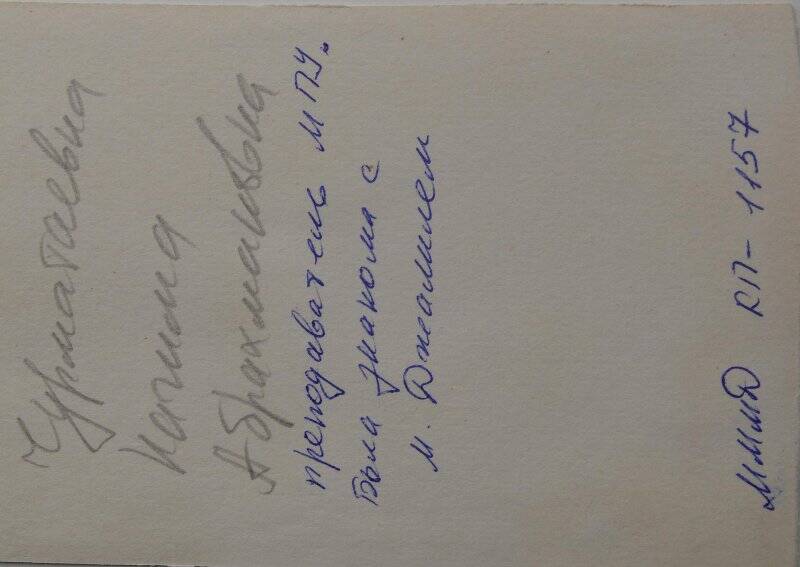 Чурматаевна
Нагима
Абрахмановна
преподаватель МПУ.
Была знакома с
М. Джалилем
МММД КП-1157